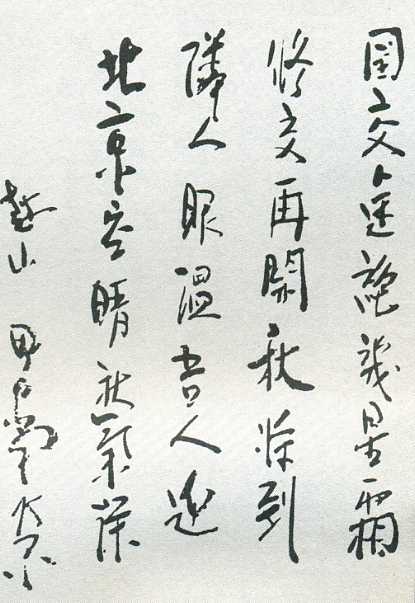 国交途絶幾星霜
修交再開秋将到
隣人眼温吾人迎
北京空晴秋氣深
越山